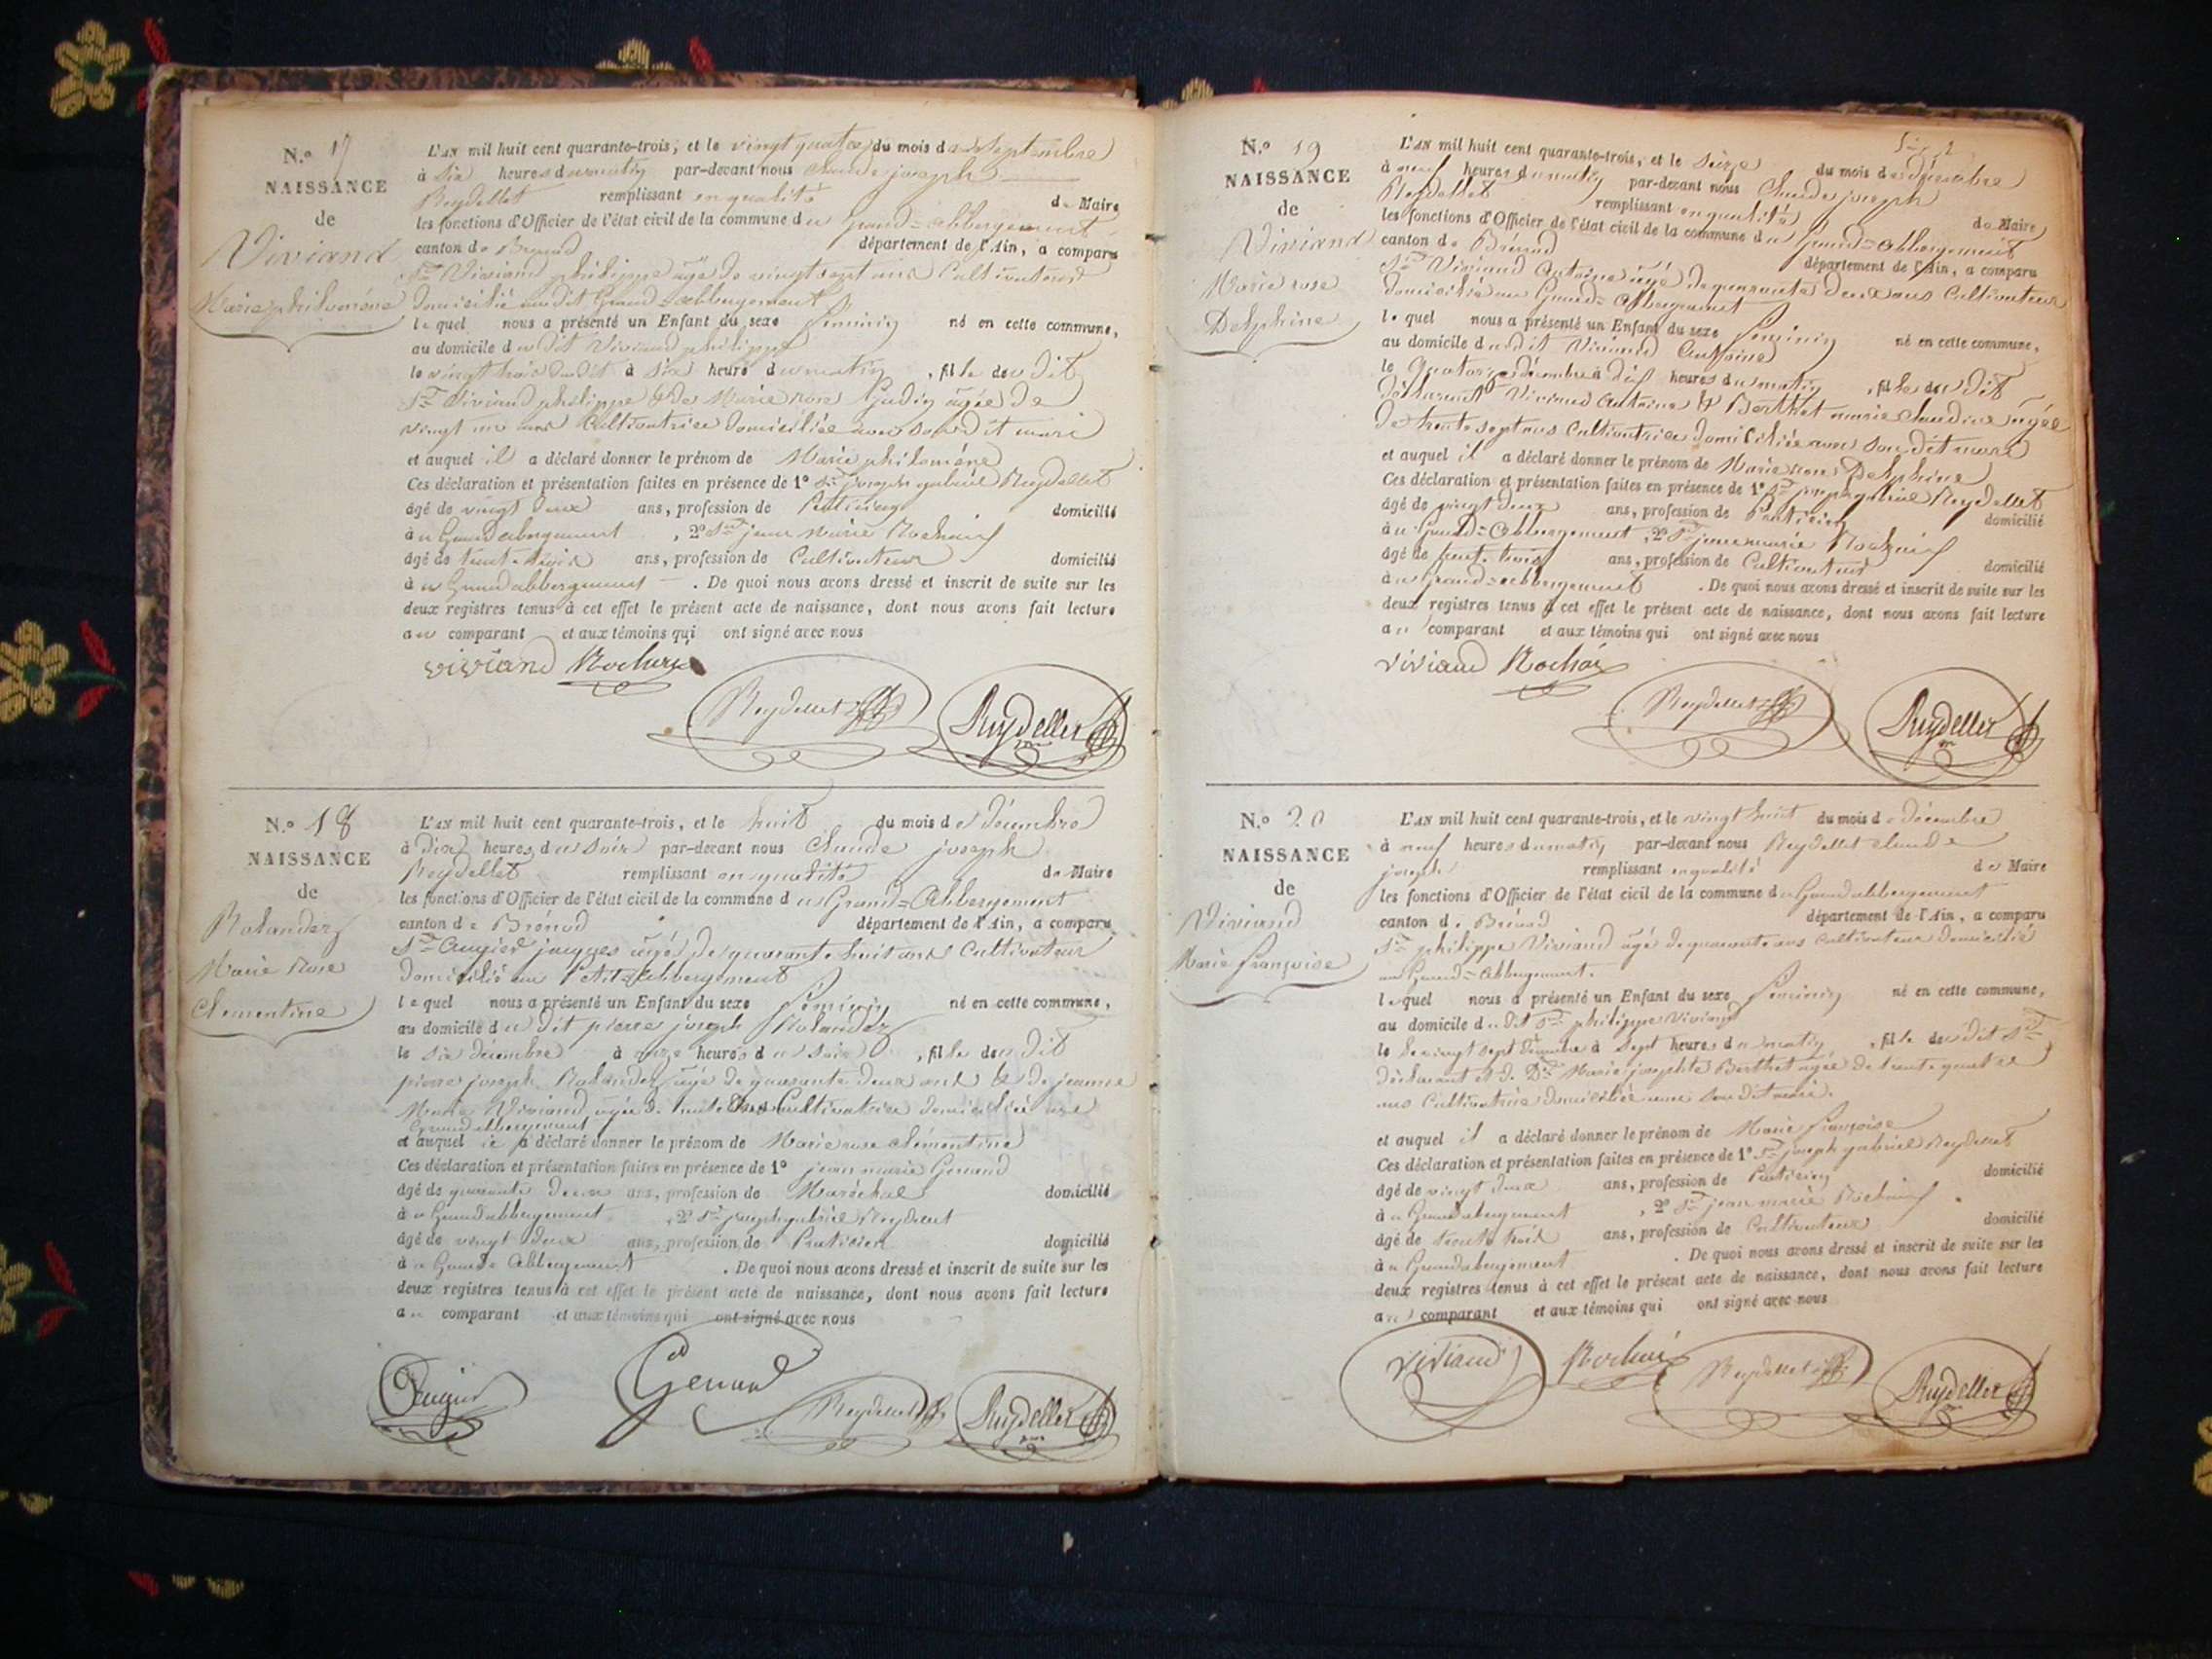 N.° 17
NAISSANCE
de
Viviand
Marie philomène
L'AN mil huit cent quarante-trois, et le vingt quatre du mois de Septembre
à six heures du matin par-devant nous Claude joseph
Reydellet remplissant en qualité de Maire
les fonctions d'Officier de l'état civil de la commune du Grand-abbergement
canton de Brenod département de l'Ain, a comparu
Sr Viviand philippe âgé de vingt sept ans Cultivateur
domicilié au dit Grand-abbergement
lequel nous a présenté un Enfant du sexe féminin né en cette commune,
au domicile du dit Viviand philippe
le vingt trois dudit à six heure du matin, fille du dit
Sr Viviand philippe & de Marie rose Gudin âgée de
vingt un ans Cultivatrice domiciliée avec son dit mari
et auquel il a déclaré donner le prénom de Marie philomène
Ces déclaration et présentation faites en présence de 1° Sr joseph gabriel Reydellet
âgé de vingt deux ans, profession de Praticien domicilié
à u Grand abergement, 2° Sr jean Marie Rochaix
âgé de trente-trois ans, profession de Cultivateur domicilié
à u Grand abbergement. De quoi nous avons dressé et inscrit de suite sur les
deux registres tenus à cet effet le présent acte de naissance, dont nous avons fait lecture
au comparant et aux témoins qui ont signé avec nous
viviand Rochaix
Reydellet Reydellet
N.° 18
NAISSANCE
de
Rolandez
Marie Rose
Clementine
L'AN mil huit cent quarante-trois, et le huit du mois de décembre
à dix heures du soir par-devant nous Claude joseph
Reydellet remplissant en qualité de Maire
les fonctions d'Officier de l'état civil de la commune du Grand-Abbergement
canton de Brénod département de l'Ain, a comparu
Sr Augier jacques âgé de quarante huit ans Cultivateur
domicilié au Petit-abbergement
lequel nous a présenté un Enfant du sexe féminin né en cette commune,
au domicile du dit pierre joseph Rolandez
le six décembre à onze heures du soir, fille du dit
pierre joseph Rolandez âgé de quarante deux ans & de jeanne
Marie Viviand âgée de trente ans Cultivatrice domiciliée au
Grand abbergement
et auquel il a déclaré donner le prénom de Marie rose clémentine
Ces déclaration et présentation faites en présence de 1° jean marie Genand
âgé de quarante deux ans, profession de Maréchal domicilié
à u Grand abbergement, 2° Sr joseph gabriel Reydellet
âgé de vingt deux ans, profession de Praticien domicilié
à u Grand Abbergement. De quoi nous avons dressé et inscrit de suite sur les
deux registres tenus à cet effet le présent acte de naissance, dont nous avons fait lecture
au comparant et aux témoins qui ont signé avec nous
Augier Genand Reydellet Reydellet
N.° 19
NAISSANCE
de
Viviand
Marie rose
Delphine
L'AN mil huit cent quarante-trois, et le seize du mois de décembre
à neuf heures du matin par-devant nous Claude joseph
Reydellet remplissant en qualité de Maire
les fonctions d'Officier de l'état civil de la commune du Grand-abbergement
canton de Brénod département de l'Ain, a comparu
Sr Viviand Antoine âgé de quarante deux ans Cultivateur
domicilié au Grand-Abbergement
lequel nous a présenté un Enfant du sexe féminin né en cette commune,
au domicile dudit Viviand Antoine
le quatorze décembre à dix heures du matin, fille du dit
déclarant Viviand Antoine & Berthet marie claudine âgée
de trente sept ans Cultivatrice domiciliée avec son dit mari
et auquel il a déclaré donner le prénom de Marie rose Delphine
Ces déclaration et présentation faites en présence de 1° Sr joseph gabriel Reydellet
âgé de vingt deux ans, profession de Praticien domicilié
à u Grand-Abbergement, 2° Sr jean marie Rochaix
âgé de trente-trois ans, profession de Cultivateur domicilié
à u Grand-abbergement. De quoi nous avons dressé et inscrit de suite sur les
deux registres tenus à cet effet le présent acte de naissance, dont nous avons fait lecture
au comparant et aux témoins qui ont signé avec nous
viviand Rochaix
Reydellet Reydellet
N.° 20
NAISSANCE
de
Viviand
Marie françoise
L'AN mil huit cent quarante-trois, et le vingt huit du mois de décembre
à neuf heures du matin par-devant nous Reydellet claude
joseph remplissant en qualité de Maire
les fonctions d'Officier de l'état civil de la commune du Grand abbergement
canton de Brénod département de l'Ain, a comparu
Sr philippe Viviand âgé de quarante ans cultivateur domicilié
au Grand-Abbergement.
lequel nous a présenté un Enfant du sexe féminin né en cette commune,
au domicile du dit Sr philippe Viviand
le le vingt sept décembre à sept heures du matin, fille du dit Sr
déclarant et de De Marie josephte Berthet agée de trente quatre
ans Cultivatrice domiciliée avec son dit mari.
et auquel il a déclaré donner le prénom de Marie françoise
Ces déclaration et présentation faites en présence de 1° Sr joseph gabriel Reydellet
âgé de vingt deux ans, profession de Praticien domicilié
à u Grand abergement, 2° Sr jean marie Rochaix
âgé de trente trois ans, profession de Cultivateur domicilié
à u Grand abergement. De quoi nous avons dressé et inscrit de suite sur les
deux registres tenus à cet effet le présent acte de naissance, dont nous avons fait lecture
au comparant et aux témoins qui ont signé avec nous
viviand Rochaix Reydellet Reydellet